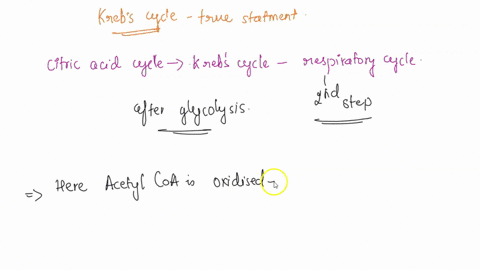 Kreb's cycle - true statment.
Citric acid cycle → Kreb's cycle - respiratory cycle.
after glycolysis. 2nd step
=> Here Acetyl CoA is oxidised -